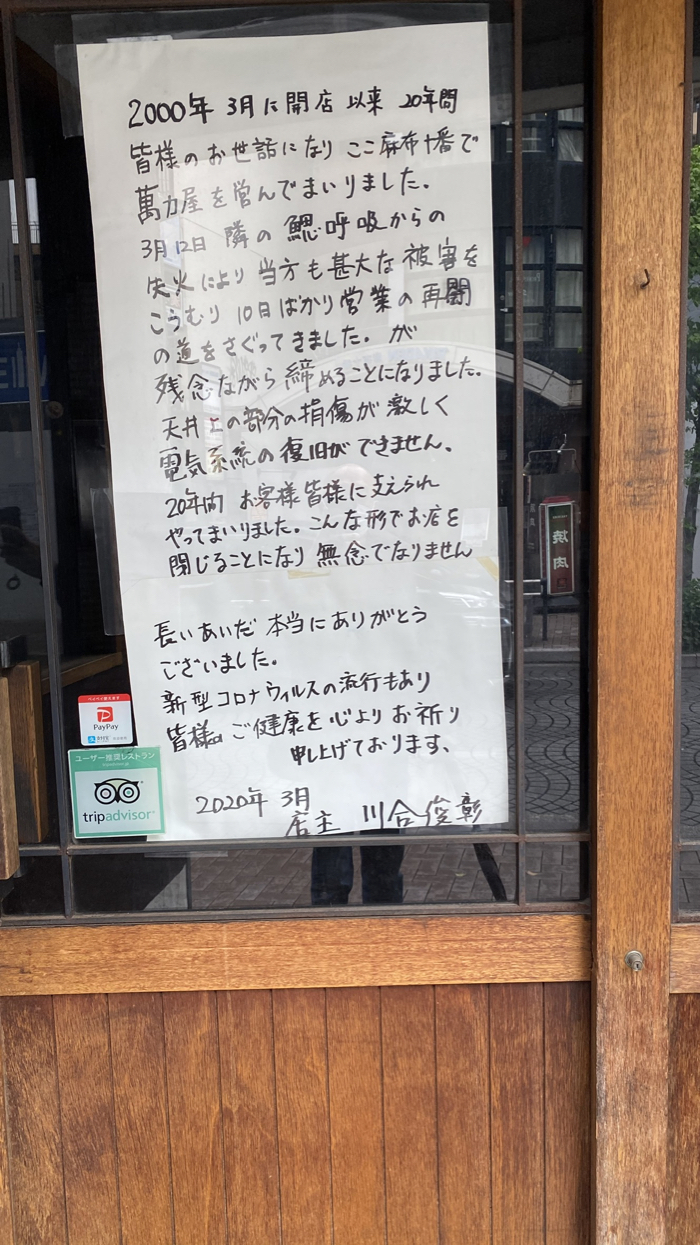 2000年 3月に開店 以来 20年間
皆様のお世話になり ここ麻布十番で
萬力屋を営んでまいりました。
3月12日 隣の 鰓呼吸からの
失火により 当方も甚大な被害を
こうむり 10日ばかり営業の再開
の道をさぐってきました。が
残念ながら締めることになりました。
天井上の部分の損傷が激しく
電気系統の復旧ができません。
20年間 お客様皆様に支えられ
やってまいりました。こんな形でお店を
閉じることになり無念でなりません
長いあいだ 本当にありがとう
ございました。
新型コロナウィルスの流行もあり
皆様のご健康を心よりお祈り
申し上げております、
2020年 3月
店主 川合俊彰
PayPay
ユーザー推奨レストラン
tripadvisor
焼肉